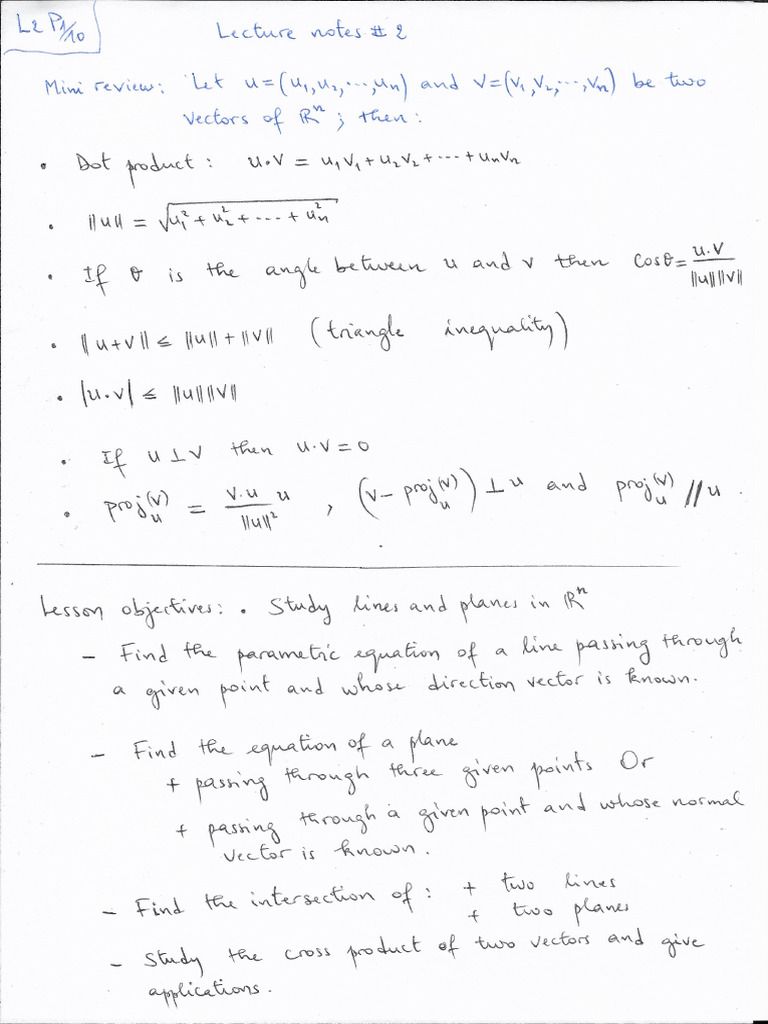 L2 P1/10
Lecture notes # 2
Mini review: Let u=(u₁,u₂,...,uₙ) and v=(v₁,v₂,...,vₙ) be two
vectors of ℝⁿ; then:
• Dot product: u•v = u₁v₁+u₂v₂+...+uₙvₙ
• ‖u‖ = √(u₁²+u₂²+....+uₙ²)
• If θ is the angle between u and v then cosθ = u.v/(‖u‖‖v‖)
• ‖u+v‖ ≤ ‖u‖+‖v‖ (triangle inequality)
• |u.v| ≤ ‖u‖‖v‖
• If u⊥v then u.v=0
• projᵤ(v) = (v.u/‖u‖²) u , (v-projᵤ(v)) ⊥ u and projᵤ(v) // u.
Lesson objectives: • Study lines and planes in ℝⁿ
- Find the parametric equation of a line passing through
a given point and whose direction vector is known.
- Find the equation of a plane
+ passing through three given points Or
+ passing through a given point and whose normal
vector is known.
- Find the intersection of: + two lines
+ two planes
- Study the cross product of two vectors and give
applications.